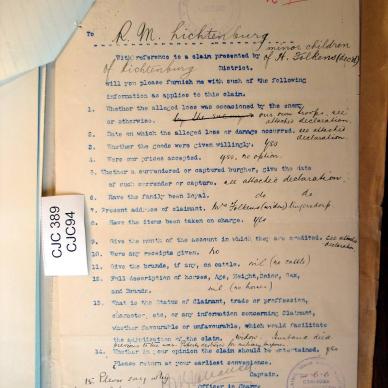 To R. M. Lichtenburg
With reference to a claim presented by minor children of H. Folkens (decd)
of Lichtenburg District.
will you please furnish me with such of the following
information as applies to this claim.
1. Whether the alleged loss was occasioned by the enemy
or otherwise. by the enemy our own troops, see attached declaration.
2. Date on which the alleged loss or damage occurred. see attached declaration
3. Whether the goods were given willingly. yes
4. Were our prices accepted. yes, no option.
5. Whether a surrendered or captured burgher, give the date
of such surrender or capture. see attached declaration.
6. Have the family been loyal. do do
7. Present address of claimant. Mrs Folkens (widow)
8. Have the items been taken on charge. yes
9. Give the month of the account in which they are credited. see attached declaration
10. Were any receipts given. no
11. Give the brands, if any, on cattle. nil (no cattle)
12. Full description of horses, Age, Height, Color, Sex,
and Brands. nil (no horses)
13. What is the Status of Claimant, trade or profession,
character, etc, or any information concerning Claimant,
whether favourable or unfavourable, which would facilitate
the adjudication of the claim. widow. Husband died
14. Whether in our opinion the claim should be entertained. yes
Please return at your earliest convenience.
15. Please say why
Captain.
Officer in Charge
CJC 389
CJC94